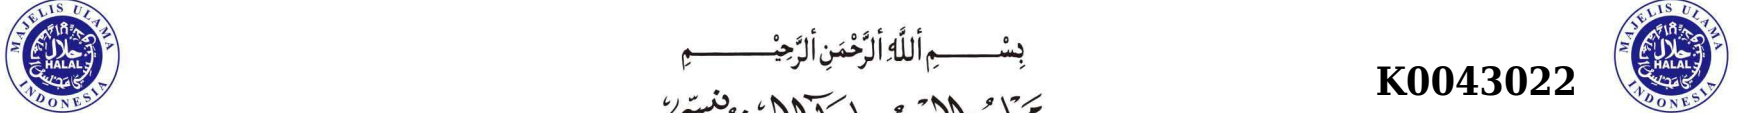 MAJELIS ULAMA INDONESIA
حلال
HALAL
بِسْــــمِ أللَّهِ ألرَّحْمَنِ ألرَّحِيْــــمِ
K0043022
MAJELIS ULAMA INDONESIA
حلال
HALAL